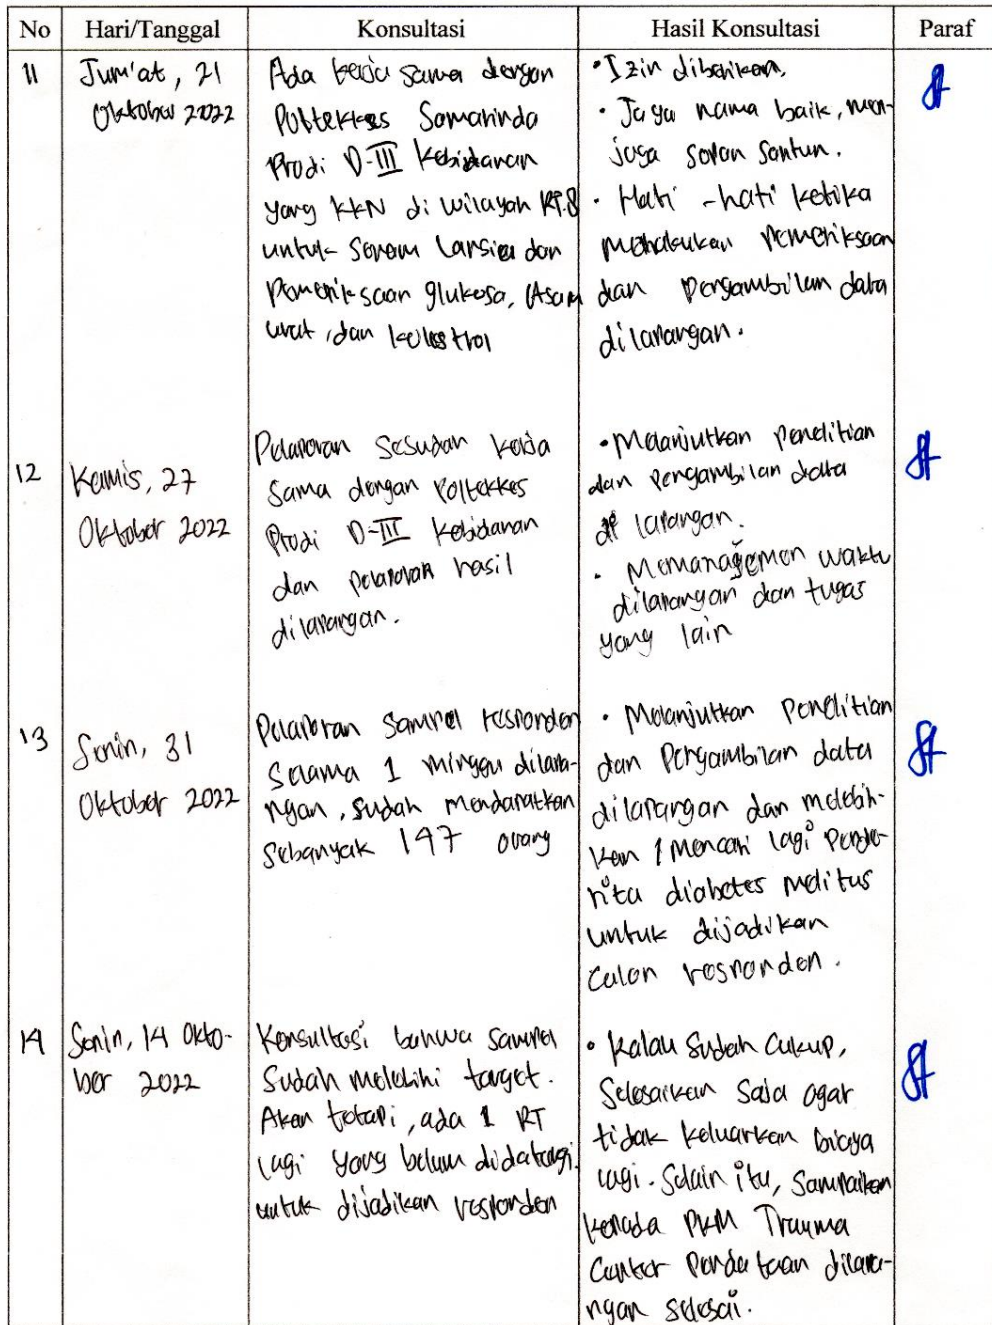 No Hari/Tanggal Konsultasi Hasil Konsultasi Paraf
11
Jum'at, 21
Oktober 2022
Ada kerja sama dengan
Poltekkes Samarinda
Prodi D-III Kebidanan
yang KKN di wilayah RT.8
untuk Senam Lansia dan
Pemeriksaan glukosa, Asam
urat, dan kolestrol
• Izin diberikan.
• Jaga nama baik, men-
jaga sopan santun.
• Hati-hati ketika
melakukan Pemeriksaan
dan pengambilan data
dilapangan.
12
Kamis, 27
Oktober 2022
Pelaporan Sesudah kerja
sama dengan Poltekkes
Prodi D-III Kebidanan
dan pelaporan hasil
dilapangan.
• Melanjutkan penelitian
dan pengambilan data
di lapangan.
• Memanagemen waktu
dilapangan dan tugas
yang lain
13
Senin, 31
Oktober 2022
Pelaporan Sampel responden
Selama 1 minggu dilapa-
ngan, sudah mendapatkan
Sebanyak 147 orang
• Melanjutkan Penelitian
dan Pengambilan data
dilapangan dan melebih-
kan / mencari lagi Pende-
rita diabetes melitus
untuk dijadikan
Calon responden.
14
Senin, 14 Okto-
ber 2022
Konsultasi bahwa sampel
Sudah melebihi target.
Akan tetapi, ada 1 RT
lagi yang belum didatangi
untuk dijadikan responden
• Kalau Sudah Cukup,
Selesaikan Saja agar
tidak keluarkan biaya
lagi. Selain itu, Sampaikan
kepada PKM Trauma
Center Pendataan dilapa-
ngan selesai.